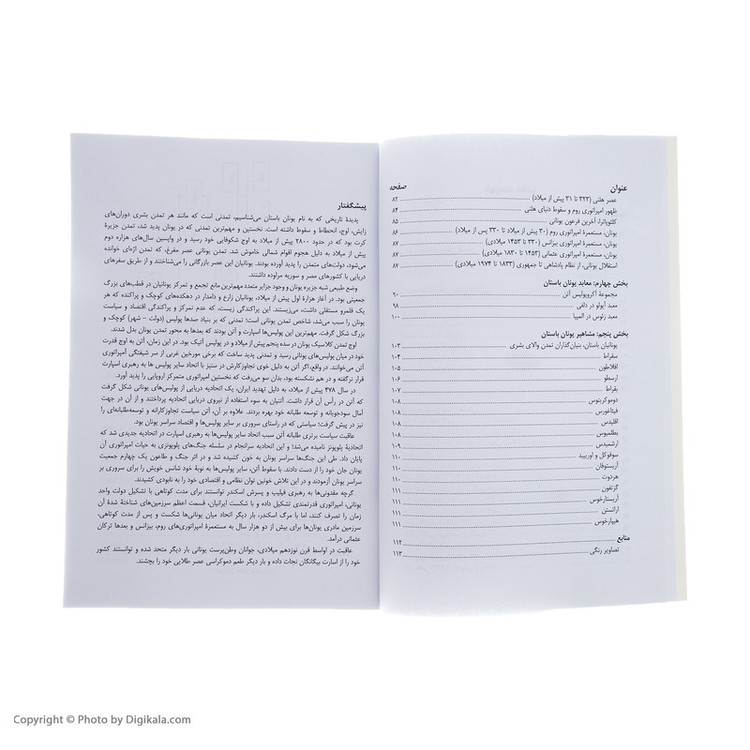 عنوان
صفحه
عصر هلنی (۳۲۳ تا ۳۱ پیش از میلاد) ۸۲
ظهور امپراتوری روم و سقوط دنیای هلنی ۸۴
کلئوپاترا، آخرین فرعون یونانی ۸۵
یونان، مستعمرهٔ امپراتوری روم (۳۰ پیش از میلاد تا ۳۳۰ پس از میلاد) ۸۶
یونان، مستعمرهٔ امپراتوری بیزانس (۳۳۰ تا ۱۴۵۳ میلادی) ۸۷
یونان، مستعمرهٔ امپراتوری عثمانی (۱۴۵۳ تا ۱۸۳۰ میلادی) ۸۷
استقلال یونان، از نظام پادشاهی تا جمهوری (۱۸۳۳ تا ۱۹۷۴ میلادی) ۸۷
بخش چهارم: معابد یونان باستان
مجموعهٔ آکروپولیس آتن ۹۰
معبد آپولو در دلفی ۹۸
معبد زئوس در المپیا ۱۰۰
بخش پنجم: مشاهیر یونان باستان
یونانیان باستان، بنیان‌گذاران تمدن والای بشری ۱۰۳
سقراط ۱۰۴
افلاطون ۱۰۵
ارسطو ۱۰۶
بقراط ۱۰۷
دموکریتوس ۱۰۸
فیثاغورس ۱۰۸
اقلیدس ۱۰۸
بطلمیوس ۱۰۸
ارشمیدس ۱۰۹
سوفوکل و اوریپید ۱۱۰
آریستوفان ۱۱۰
هردوت ۱۱۰
گزنفون ۱۱۱
آریستارخوس ۱۱۱
اراتستن ۱۱۱
هیپارخوس ۱۱۱
منابع ۱۱۲
تصاویر رنگی ۱۱۳
پیشگفتار
پدیدهٔ تاریخی که به نام یونان باستان می‌شناسیم، تمدنی است که مانند هر تمدن بشری دوران‌های
زایش، اوج، انحطاط و سقوط داشته است. نخستین و مهم‌ترین تمدنی که در یونان پدید آمد، تمدن جزیرهٔ
کرت بود که در حدود ۲۸۰۰ پیش از میلاد به اوج شکوفایی خود رسید و در واپسین سال‌های هزاره دوم
پیش از میلاد به دلیل هجوم اقوام شمالی خاموش شد. تمدن یونانی عصر مفرغ، که تمدن اژه‌ای خوانده
می‌شود، دولت‌های متمدن را پدید آورده بودند. یونانیان این عصر بازرگانی را می‌شناختند و از طریق سفرهای
دریایی با کشورهای مصر و سوریه مراوده داشتند.
وضع طبیعی شبه جزیره یونان و وجود جزایر متعدد مهم‌ترین مانع تجمع و تمرکز یونانیان در قطب‌های بزرگ
جمعیتی بود. در آغاز هزارهٔ اول پیش از میلاد، یونانیان زارع و دامدار در دهکده‌های کوچک و پراکنده که هر
یک قلمرو مستقلی داشت، می‌زیستند. این پراکندگی زیست، که عدم تمرکز و پراکندگی اقتصاد و سیاست
یونان را سبب می‌شد، شاخص تمدن یونانی است؛ تمدنی که بر بنیاد صدها پولیس (دولت – شهر) کوچک و
بزرگ شکل گرفت. مهم‌ترین این پولیس‌ها اسپارت و آتن بودند که بعدها به محور تمدن یونان بدل شدند.
اوج تمدن کلاسیک یونان در سده پنجم پیش از میلاد و در پولیس آتیک بود. در این زمان، آتن به اوج قدرت
خود در میان پولیس‌های یونانی رسید و تمدنی پدید ساخت که برخی مورخین غربی از سر شیفتگی آمپراتوری
آتن می‌خوانند. در واقع، اگر آتن به دلیل خوی تجاوزکارش در ستیز با اتحاد سایر پلیس ها به رهبری اسپارت
قرار نگرفته و در هم نشکسته بود، بدان سو می‌رفت که نخستین امپراتوری متمرکز اروپایی را پدید آورد.
در سال ۴۷۸ پیش از میلاد، به دلیل تهدید ایران، یک اتحادیه دریایی از پولیس‌های یونانی شکل گرفت
که آتن در رأس آن قرار داشت. آتنیان به سوء استفاده از نیروی دریایی اتحادیه پرداختند و از آن در جهت
آمال سودجویانه و توسعه طلبانه خود بهره بردند. علاوه بر آن، آتن سیاست تجاوزکارانه و توسعه‌طلبانه‌ای را
نیز در پیش گرفت؛ سیاستی که در راستای سروری بر سایر پولیس‌ها و اقتصاد سراسر یونان بود.
عاقبت سیاست برتری طلبانه آتن سبب اتحاد سایر پولیس‌ها به رهبری اسپارت در اتحادیه جدیدی شد که
اتحادیهٔ پلوپونز نامیده می‌شد؛ و این اتحادیه سرانجام در سلسله جنگ‌های پلوپونزی به حیات امپراتوری آتن
پایان داد. طی این جنگ‌ها سراسر یونان به خون کشیده شد و در اثر جنگ و طاعون یک چهارم جمعیت
یونان جان خود را از دست دادند. با سقوط آتن، سایر پولیس‌ها به نوبهٔ خود شانس خویش را برای سروری بر
سراسر یونان آزمودند و در این تلاش خونین توان نظامی و اقتصادی خود را به نابودی کشیدند.
گرچه مقدونی‌ها به رهبری فیلیپ و پسرش اسکندر توانستند برای مدت کوتاهی با تشکیل دولت واحد
یونانی، امپراتوری قدرتمندی تشکیل داده و با شکست ایرانیان، قسمت اعظم سرزمین‌های شناختهٔ شدهٔ آن
زمان را تصرف کنند، اما با مرگ اسکندر، بار دیگر اتحاد میان یونانی‌ها شکست و پس از مدت کوتاهی،
سرزمین مادری یونان‌ها برای بیش از دو هزار سال به مستعمرهٔ امپراتوری‌های روم، بیزانس و بعدها ترکان
عثمانی درآمد.
عاقبت در اواسط قرن نوزدهم میلادی، جوانان وطن‌پرست یونانی بار دیگر متحد شده و توانستند کشور
خود را از اسارت بیگانگان نجات داده و بار دیگر طعم دموکراسی عصر طلایی خود را بچشند.
Copyright © Photo by Digikala.com